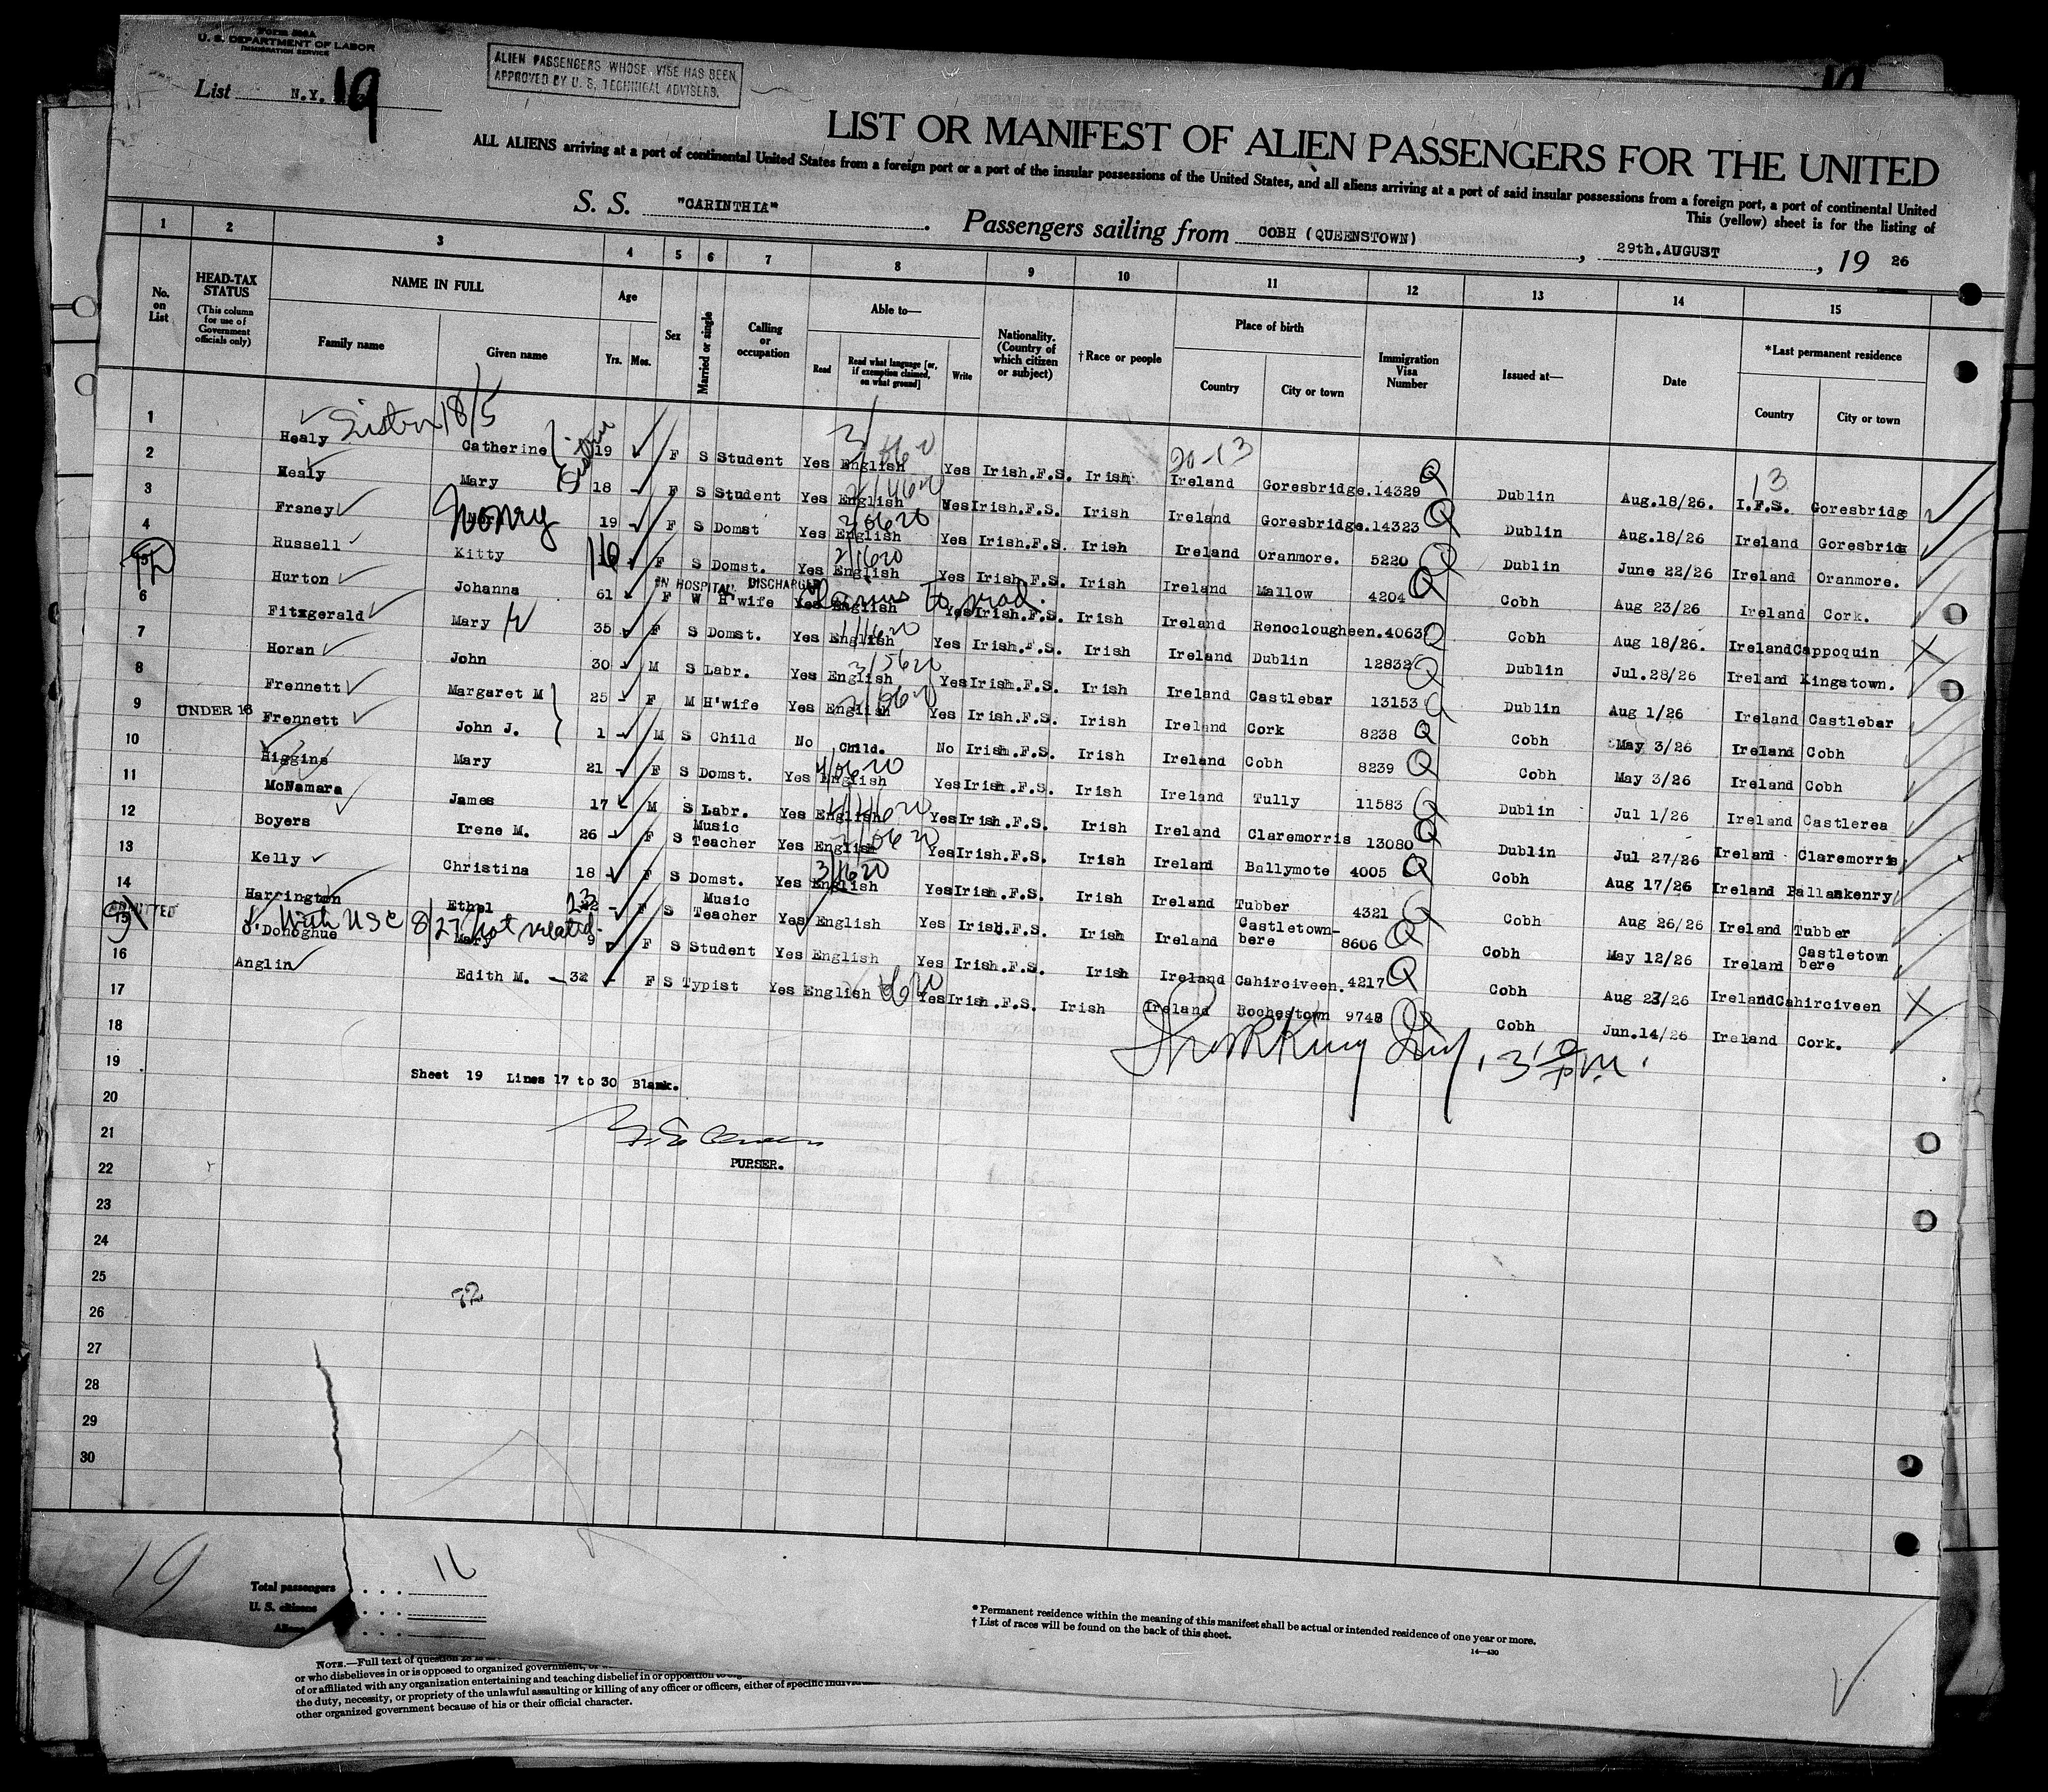 Form 500A
U. S. DEPARTMENT OF LABOR
IMMIGRATION SERVICE
List N.Y. 19
ALIEN PASSENGERS WHOSE VISE HAS BEEN
APPROVED BY U. S. TECHNICAL ADVISERS.
LIST OR MANIFEST OF ALIEN PASSENGERS FOR THE UNITED
ALL ALIENS arriving at a port of continental United States from a foreign port or a port of the insular possessions of the United States, and all aliens arriving at a port of said insular possessions from a foreign port, a port of continental United
This (yellow) sheet is for the listing of
S. S. "CARINTHIA". Passengers sailing from COBH (QUEENSTOWN), 29th.AUGUST, 19 26
1 2 3 4 5 6 7 8 9 10 11 12 13 14 15
No. on List
HEAD-TAX STATUS (This column for use of Government officials only)
NAME IN FULL
Family name
Given name
Age
Yrs. Mos.
Sex
Married or single
Calling or occupation
Able to—
Read
Read what language [or, if exemption claimed, on what ground]
Write
Nationality. (Country of which citizen or subject)
†Race or people
Place of birth
Country
City or town
Immigration Visa Number
Issued at—
Date
*Last permanent residence
Country
City or town
Sister 18/5
20-13
13
1 Healy Catherine 19 F S Student Yes English Yes Irish.F.S. Irish Ireland Goresbridge. 14329 Q Dublin Aug.18/26. I.F.S. Goresbridge
2 Healy Mary 18 F S Student Yes English Yes Irish.F.S. Irish Ireland Goresbridge. 14323 Q Dublin Aug.18/26 Ireland Goresbridge
3 Franey Nonny 19 F S Domst Yes English Yes Irish.F.S. Irish Ireland Oranmore. 5220 Q Dublin June 22/26 Ireland Oranmore.
4 Russell Kitty 16 F S Domst. Yes English Yes Irish.F.S. Irish Ireland Mallow 4204 Q Cobh Aug 23/26 Ireland Cork.
IN HOSPITAL DISCHARGED
Claims to read.
5 Hurton Johanna 61 F W H'wife Yes English Yes Irish.F.S. Irish Ireland Renoclougheen. 4063 Q Cobh Aug 18/26. Ireland Cappoquin
6 Fitzgerald Mary 35 F S Domst. Yes English Yes Irish.F.S. Irish Ireland Dublin 12832 Q Dublin Jul.28/26 Ireland Kingstown.
7 Horan John 30 M S Labr. Yes English Yes Irish.F.S. Irish Ireland Castlebar 13153 Q Dublin Aug 1/26 Ireland Castlebar
8 Frennett Margaret M 25 F M H'wife Yes English Yes Irish.F.S. Irish Ireland Cork 8238 Q Cobh May 3/26 Ireland Cobh
9 UNDER 16 Frennett John J. 1 M S Child No Child. No Irish.F.S. Irish Ireland Cobh 8239 Q Cobh May 3/26 Ireland Cobh
10 Higgins Mary 21 F S Domst. Yes English Yes Irish.F.S. Irish Ireland Tully 11583 Q Dublin Jul 1/26 Ireland Castlerea
11 McNamara James 17 M S Labr. Yes English Yes Irish.F.S. Irish Ireland Claremorris 13080 Q Dublin Jul 27/26 Ireland Claremorris
12 Boyers Irene M. 26 F S Music Teacher Yes English Yes Irish.F.S. Irish Ireland Ballymote 4005 Q Cobh Aug 17/26 Ireland Ballankenry
13 Kelly Christina 18 F S Domst. Yes English Yes Irish.F.S. Irish Ireland Tubber 4321 Q Cobh Aug 26/26 Ireland Tubber
14 Harrington Ethel 23 F S Music Teacher Yes English Yes Irish.F.S. Irish Ireland Castletown-bere 8606 Q Cobh May 12/26 Ireland Castletown bere
ADMITTED With USC 8/27 Not related.
15 O'Donoghue Mary 9 F S Student Yes English Yes Irish.F.S. Irish Ireland Cahirciveen. 4217 Q Cobh Aug 23/26 Ireland Cahirciveen
16 Anglin Edith M. 32 F S Typist Yes English Yes Irish.F.S. Irish Ireland Rochestown 9748 Q Cobh Jun.14/26 Ireland Cork.
17
18
19
Sheet 19 Lines 17 to 30 Blank.
20
21
22
PURSER.
23
24
25
26
27
28
29
30
19
Total passengers . . . 16
U. S. citizens . . .
Aliens . . .
* Permanent residence within the meaning of this manifest shall be actual or intended residence of one year or more.
† List of races will be found on the back of this sheet.
14—430
NOTE.—Full text of question
or who disbelieves in or is opposed to organized government,
of or affiliated with any organization entertaining and teaching disbelief in or opposition to
the duty, necessity, or propriety of the unlawful assaulting or killing of any officer or officers, either of specific
other organized government because of his or their official character.